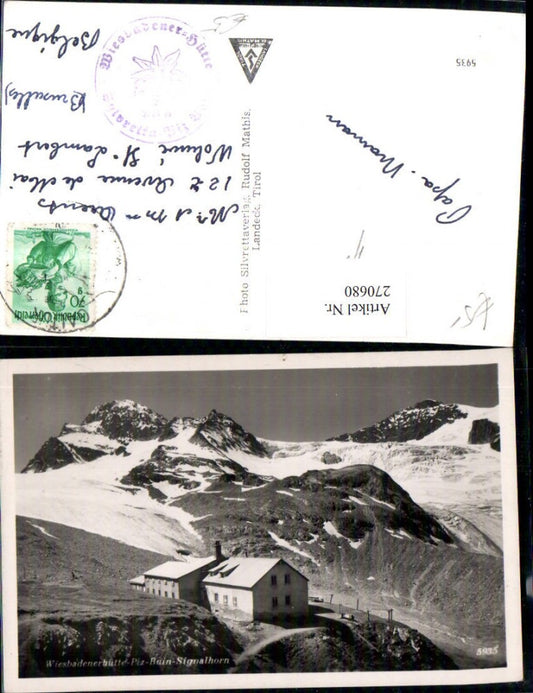 Papa. Maman
Mr et Mme Arents
122 Avenue de Mai
Woluwé St. Lambert
(Bruxelles)
Belgique
Wiesbadener-Hütte
Photo Silvrettaverlag, Rudolf Mathis,
Landeck, Tirol
5935
Artikel Nr.
270680
Republik Österreich
70
g
Wiesbadenerhütte-Piz-Buin-Signalhorn
5935